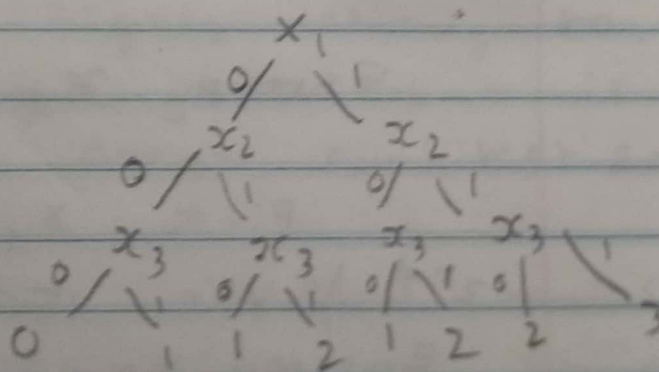 x₁
0 1
x₂ x₂
0 1 0 1
x₃ x₃ x₃ x₃
0 1 0 1 0 1 0 1
0 1 1 2 1 2 2 3